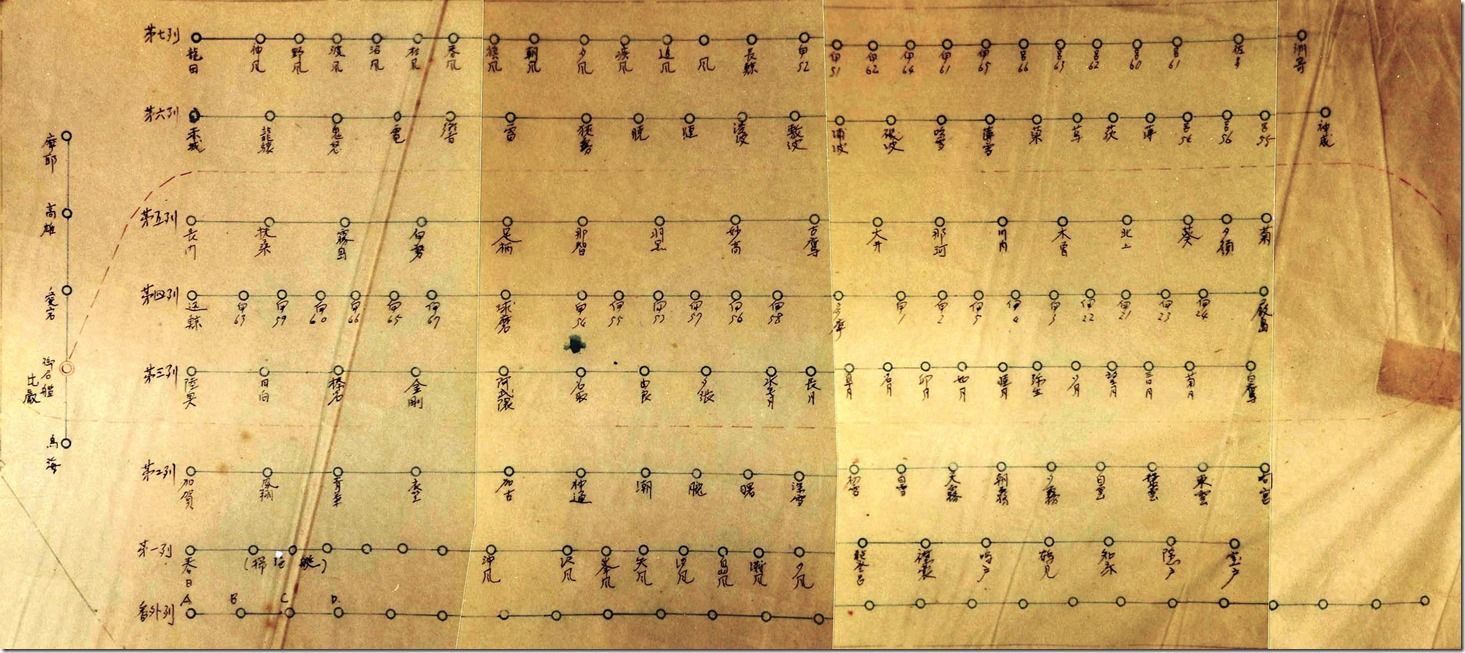 第七列 龍田 野風 波風 沼風 春風 旗風 朝風 夕風 疾風 追風 風 長鯨 伊52 伊51 伊62 伊64 伊61 伊65 呂66 呂63 呂62 呂60 呂61
第六列 赤城 龍驤 鬼怒 電 響 雷 狭霧 暁 漣 綾波 敷波 浦波 磯波 吹雪 薄雪 萩 呂56 呂55 神威
第五列 長門 扶桑 霧島 伊勢 足柄 那智 羽黒 妙高 古鷹 大井 那珂 川内 木曽 北上 葵 菊
第四列 迅鯨 伊63 伊59 伊60 伊66 伊65 伊67 球磨 伊54 伊55 伊53 伊57 伊56 伊58 伊1 伊2 伊5 伊4 伊3 伊22 伊21 伊23 伊24 厳島
第三列 陸奥 日向 榛名 金剛 阿武隈 名取 由良 夕張 水無月 長月 皐月 卯月 睦月 弥生 夕月 望月 三日月 菊月 白鷹
第二列 加賀 鳳翔 青葉 衣笠 加古 神通 潮 朧 曙 深雪 初雪 白雪 天霧 朝霧 夕霧 白雲 叢雲 東雲 間宮
第一列 春日 (掃海艇) 沖風 沢風 峯風 矢風 汐風 島風 灘風 夕風 襟裳 鳴戸 鶴見 知床 隠戸 室戸
番外列 A B C D
摩耶
高雄
愛宕
御召艦
比叡
鳥海